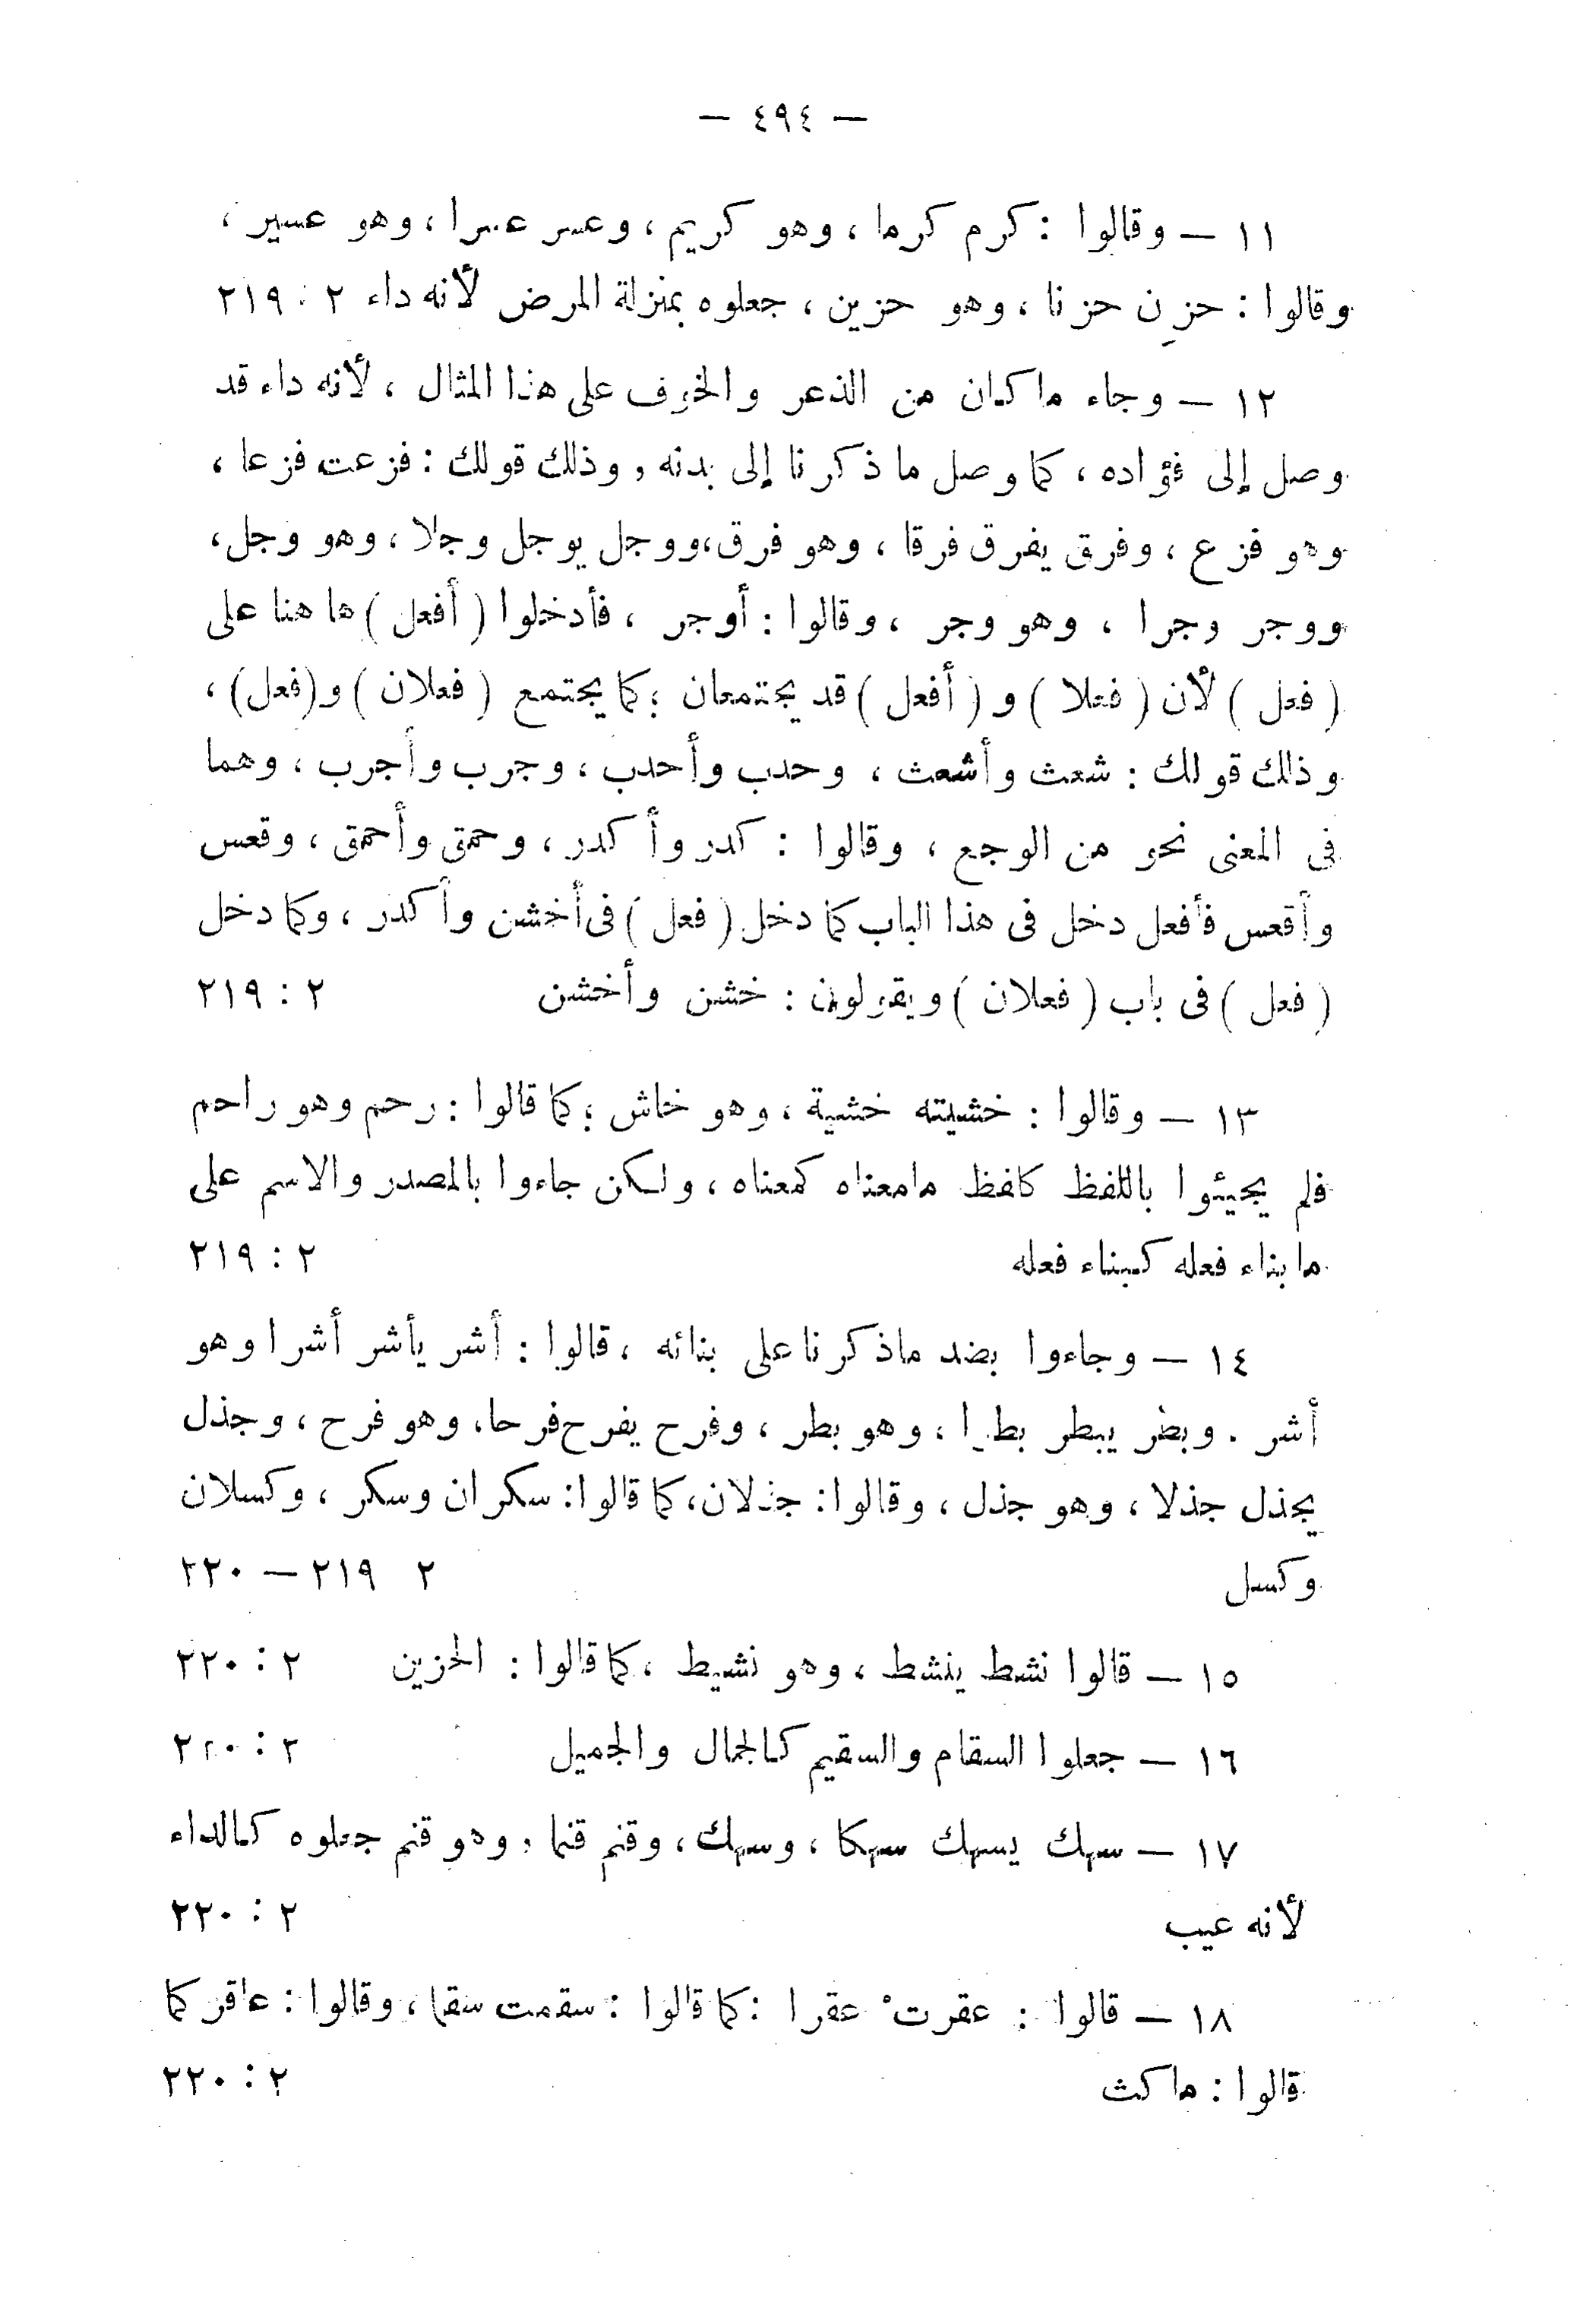 — ٤٩٤ —
١١ — وقالوا : كرم كرما ، وهو كريم ، وعسر عسرا ، وهو عسير ،
وقالوا : حزن حزنا ، وهو حزين ، جعلوه بمنزلة المرض لأنه داء ٢ : ٢١٩
١٢ — وجاء ما كان من الذعر والخوف على هذا المثال ، لأنه داء قد
وصل إلى فؤاده ، كما وصل ما ذكرنا إلى بدنه ، وذلك قولك : فزعت فزعا ،
وهو فزع ، وفرق يفرق فرقا ، وهو فرق ، ووجل يوجل وجلا ، وهو وجل ،
ووجر وجرا ، وهو وجر ، وقالوا : أوجر ، فأدخلوا ( أفعل ) ها هنا على
( فعل ) لأن ( فعلا ) و ( أفعل ) قد يجتمعان ؛ كما يجتمع ( فعلان ) و (فعل) ،
وذلك قولك : شعث وأشعث ، وحدب وأحدب ، وجرب وأجرب ، وهما
فى المعنى نحو من الوجع ، وقالوا : كدر وأكدر ، وحمق وأحمق ، وقعس
وأقعس فأفعل دخل فى هذا الباب كما دخل ( فعل ) فى أخشن وأكدر ، وكما دخل
( فعل ) فى باب ( فعلان ) ويقولون : خشن وأخشن ٢ : ٢١٩
١٣ — وقالوا : خشيته خشية ، وهو خاش ؛ كما قالوا : رحم وهو راحم
فلم يجيئوا باللفظ كلفظ ما معناه كمعناه ، ولكن جاءوا بالمصدر والاسم على
ما بناء فعله كبناء فعله ٢ : ٢١٩
١٤ — وجاءوا بضد ما ذكرنا على بنائه ، قالوا : أشر يأشر أشرا وهو
أشر . وبطر يبطر بطرا ، وهو بطر ، وفرح يفرح فرحا ، وهو فرح ، وجذل
يجذل جذلا ، وهو جذل ، وقالوا : جذلان ، كما قالوا : سكران وسكر ، وكسلان
وكسل ٢ ٢١٩ — ٢٢٠
١٥ — قالوا نشط ينشط ، وهو نشيط ، كما قالوا : الحزين ٢ : ٢٢٠
١٦ — جعلوا السقام والسقيم كالجمال والجميل ٢ : ٢٢٠
١٧ — سهك يسهك سهكا ، وسهك ، وقنم قنما ، وهو قنم جعلوه كالداء
لأنه عيب ٢ : ٢٢٠
١٨ — قالوا : عقرتْ عقرا : كما قالوا : سقمت سقما ، وقالوا : عاقر كما
قالوا : ماكث ٢ : ٢٢٠